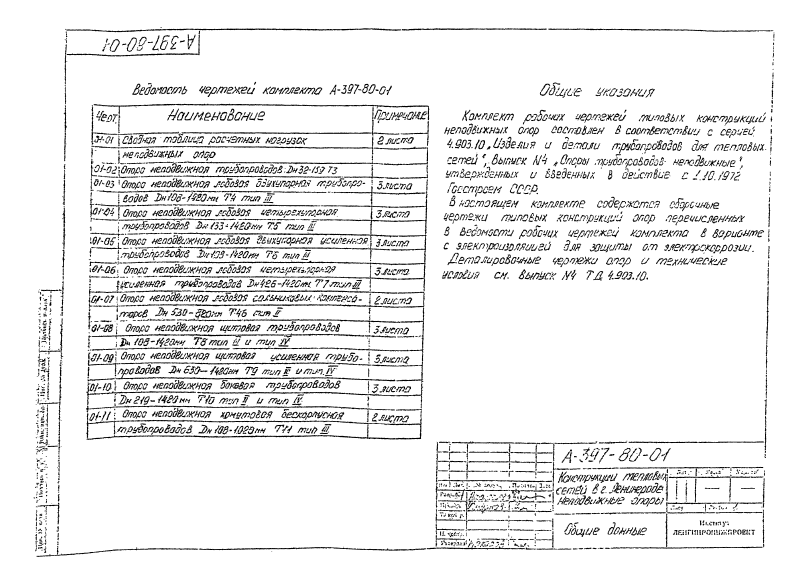 А-397-80-01
Ведомость чертежей комплекта А-397-80-01
Черт. Наименование Примечание
01-01 Сводная таблица расчетных нагрузок 2 листа
неподвижных опор
01-02 Опора неподвижная трубопроводов Дн 32-159 Т3
01-03 Опора неподвижная лобовая двухупорная трубопро- 3 листа
водов Дн 108-1420мм Т4 тип III
01-04 Опора неподвижная лобовая четырехупорная 3 листа
трубопроводов Дн 133-1420мм Т5 тип III
01-05 Опора неподвижная лобовая двухупорная усиленная 3 листа
трубопроводов Дн 108-1420мм Т6 тип III
01-06 Опора неподвижная лобовая четырехупорная 3 листа
усиленная трубопроводов Дн 426-1420мм Т7 тип III
01-07 Опора неподвижная лобовая сальниковых компенса- 2 листа
торов Дн 530-820мм Т46 тип II
01-08 Опора неподвижная щитовая трубопроводов 3 листа
Дн 108-1420мм Т8 тип III и тип IV
01-09 Опора неподвижная щитовая усиленная трубо- 3 листа
проводов Дн 630-1420мм Т9 тип III и тип IV
01-10 Опора неподвижная боковая трубопроводов 3 листа
Дн 219-1420мм Т10 тип II и тип III
01-11 Опора неподвижная хомутовая бескорпусная 2 листа
трубопроводов Дн 108-1020мм Т11 тип III
Общие указания
Комплект рабочих чертежей типовых конструкций
неподвижных опор составлен в соответствии с серией
4.903.10 „Изделия и детали трубопроводов для тепловых
сетей", выпуск №4 „Опоры трубопроводов неподвижные",
утвержденных и введенных в действие с 1.10.1972
Госстроем СССР.
В настоящем комплекте содержатся сборочные
чертежи типовых конструкций опор перечисленных
в ведомости рабочих чертежей комплекта в варианте
с электроизоляцией для защиты от электрокоррозии.
Деталировочные чертежи опор и технические
условия см. выпуск №4 ТД 4.903.10.
А-397-80-01
Конструкции тепловых
сетей в г. Ленинграде
Неподвижные опоры
Общие данные
Институт
ЛЕНГИПРОИНЖПРОЕКТ